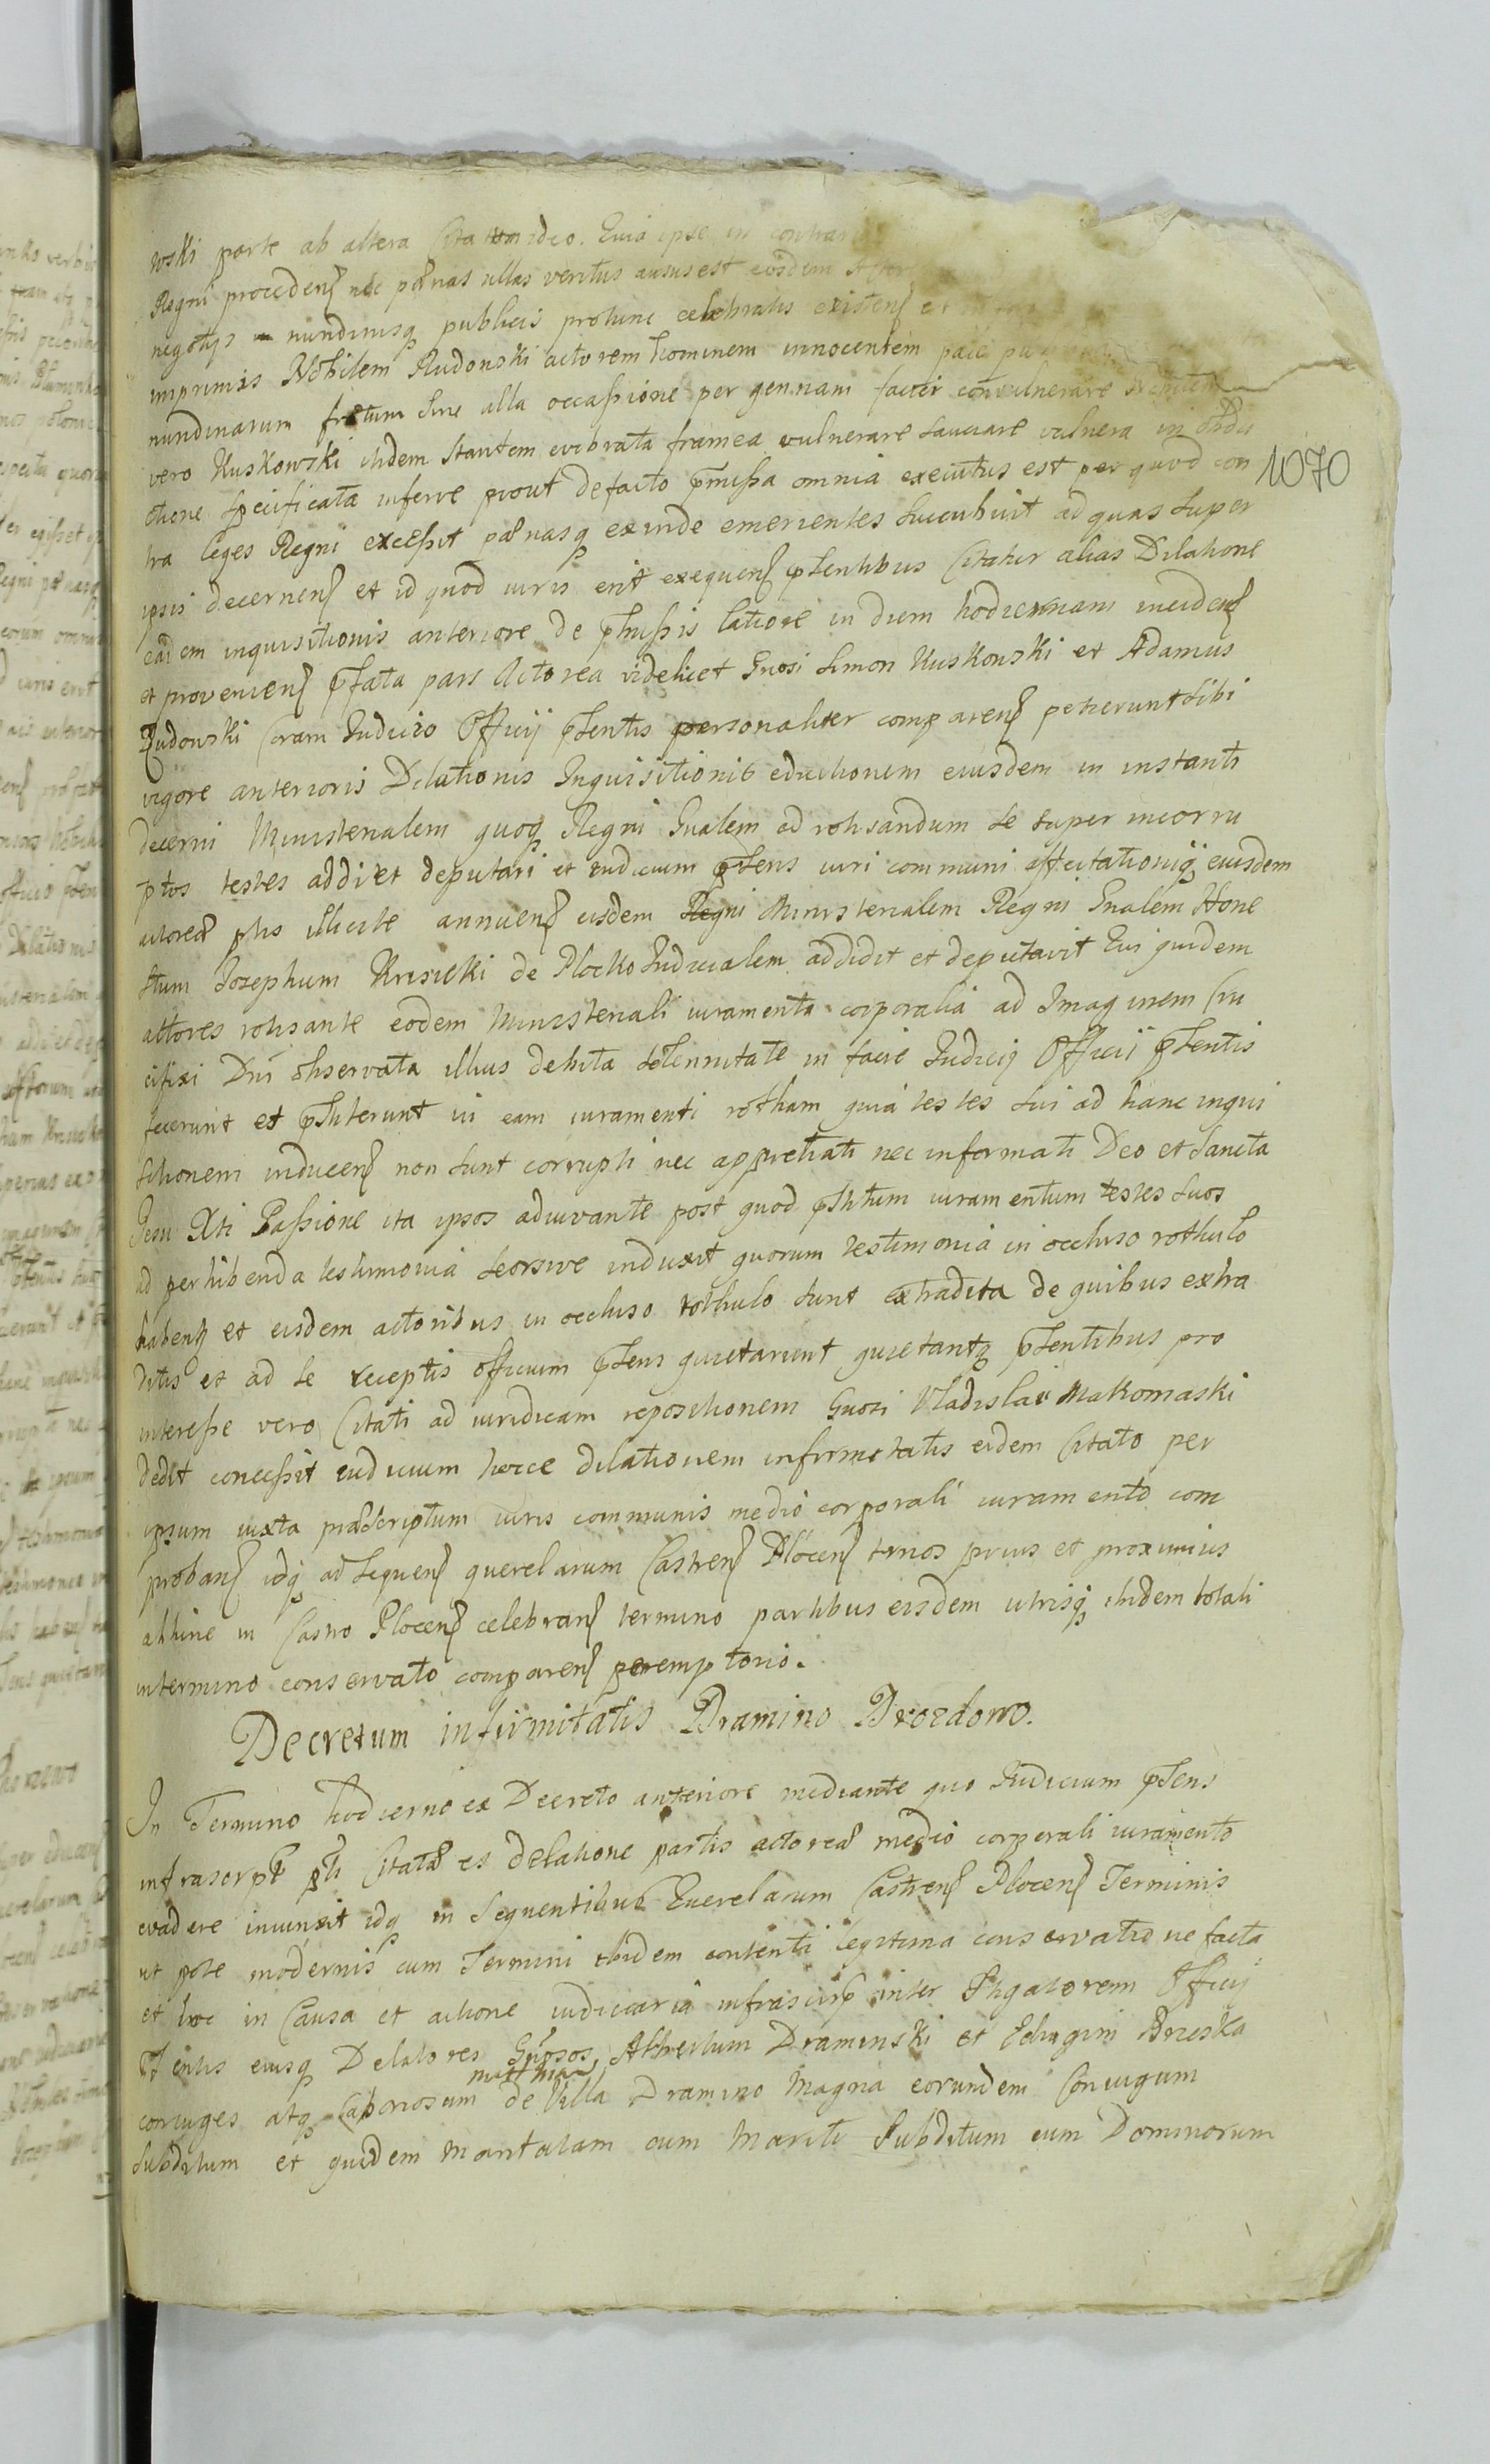 wski parte ab altera Citatum ideo. Quia ipse in contrar
Regni proceden̄ nec pœnas ullas veritus ausus est eosdem Actor
negotijs nundinisq̨ publicis protunc celebratis existen̄ et
imprimis Nobilem Rudowski actorem hominem innocentem
nundinarum fretum sine alla occassione per gennam faciei convulnerare
vero Kuskowski ibidem stantem evibrata framea vulnerare sauciare vulnera in obdu
ctione specificata inferre prout defacto p̄missa omnia executus est per quod con
tra leges Regni excessit pœnasq̨ exinde emerientes succubuit ad quas super
ipsis decernen̄ et id quod iuris erit exequen̄ p̄sentibus Citatur alias Dilatione
eadem inquisitionis anteriore de p̄missis latiore in diem hodiernam inciden̄
et provenien̄ p̄fata pars Actorea videlicet Gnosi Simon Kuskowski et Adamus
Rudowski Coram Iudicio Officij p̄sentis personaliter comparen̄ petierunt sibi
vigore anterioris Dilationis Inquisitionis eductionem eiusdem in instanti
decerni Ministerialem quoq̨ Regni Gnalem ad rotisandum se super incorru
ptos testes addi et deputari et iudicium p̄sens iuri communi affectationiq̨ eiusdem
actoreæ ptis illicite annuen̄ eisdem Regni Ministerialem Regni Gnalem Hone
stum Iosephum Krusicki de Plocko Iudicialem addidit et deputavit Qui quidem
actores rotisante eodem Ministeriali iuramenta corporalia ad Imaginem Cru
cifixi Dni observata illius debita solennitate in facie Iudicij Officij p̄sentis
fecerunt et p̄stiterunt in eam iuramenti rotham quia testes sui ad hanc inqui
sitionem inducen̄ non sunt corrupti nec appretiati nec informati Deo et Sancta
Iesu Xti Passione ita ipsos adiuvante post quod p̄stitum iuramentum testes suos
ad perhibenda testimonia seorsive induxit quorum testimonia in occluso rothulo
haben̄ et eisdem actoribus in occluso rothulo sunt extradita de quibus extra
ditis et ad se receptis officium p̄sens quietarunt quietantq̨ p̄sentibus pro
interesse vero Citati ad iuridicam repositionem Gnosi Vladislai Makomaski
dedit concessit iudicium hocce dilationem infirmitatis eidem Citato per
ipsum iuxta præscriptum iuris communis medio corporali iuramento com
proban̄ idq̨ ad sequen̄ querelarum Castren̄ Plocen̄ trnos prius et proximius
abhinc in Castro Plocen̄ celebran̄ termino partibus eisdem utrisq̨ ibidem totali
intermino conservato comparen̄ peremptorio.
Decretum infirmitatis Dramino Drozdowo.
In Termino hodierno ex Decreto anteriore mediante quo Iudicium p̄sens
infrascrpt pti Citatæ es delatione partis actoreæ medio corporali iuramento
evadere iniunxit idq̨ in sequentibus Querelarum Castren̄ Plocen̄ Terminis
ut pote modernis cum Termini ibidem contenti legitima conservatione facta
et hoc in Causa et actione iudiciaria infrascrip inter Istigatorem Officij
p̄sentis eiusq̨ Delatores Gnosos Albertum Draminski et Edvigim Brzeska
coniuges atq̨ Laboriosum de Villa Dramino Magna eorundem Coniugum
subditum et quidem Maritatam cum Mariti Subditum eum Dominorum
1070